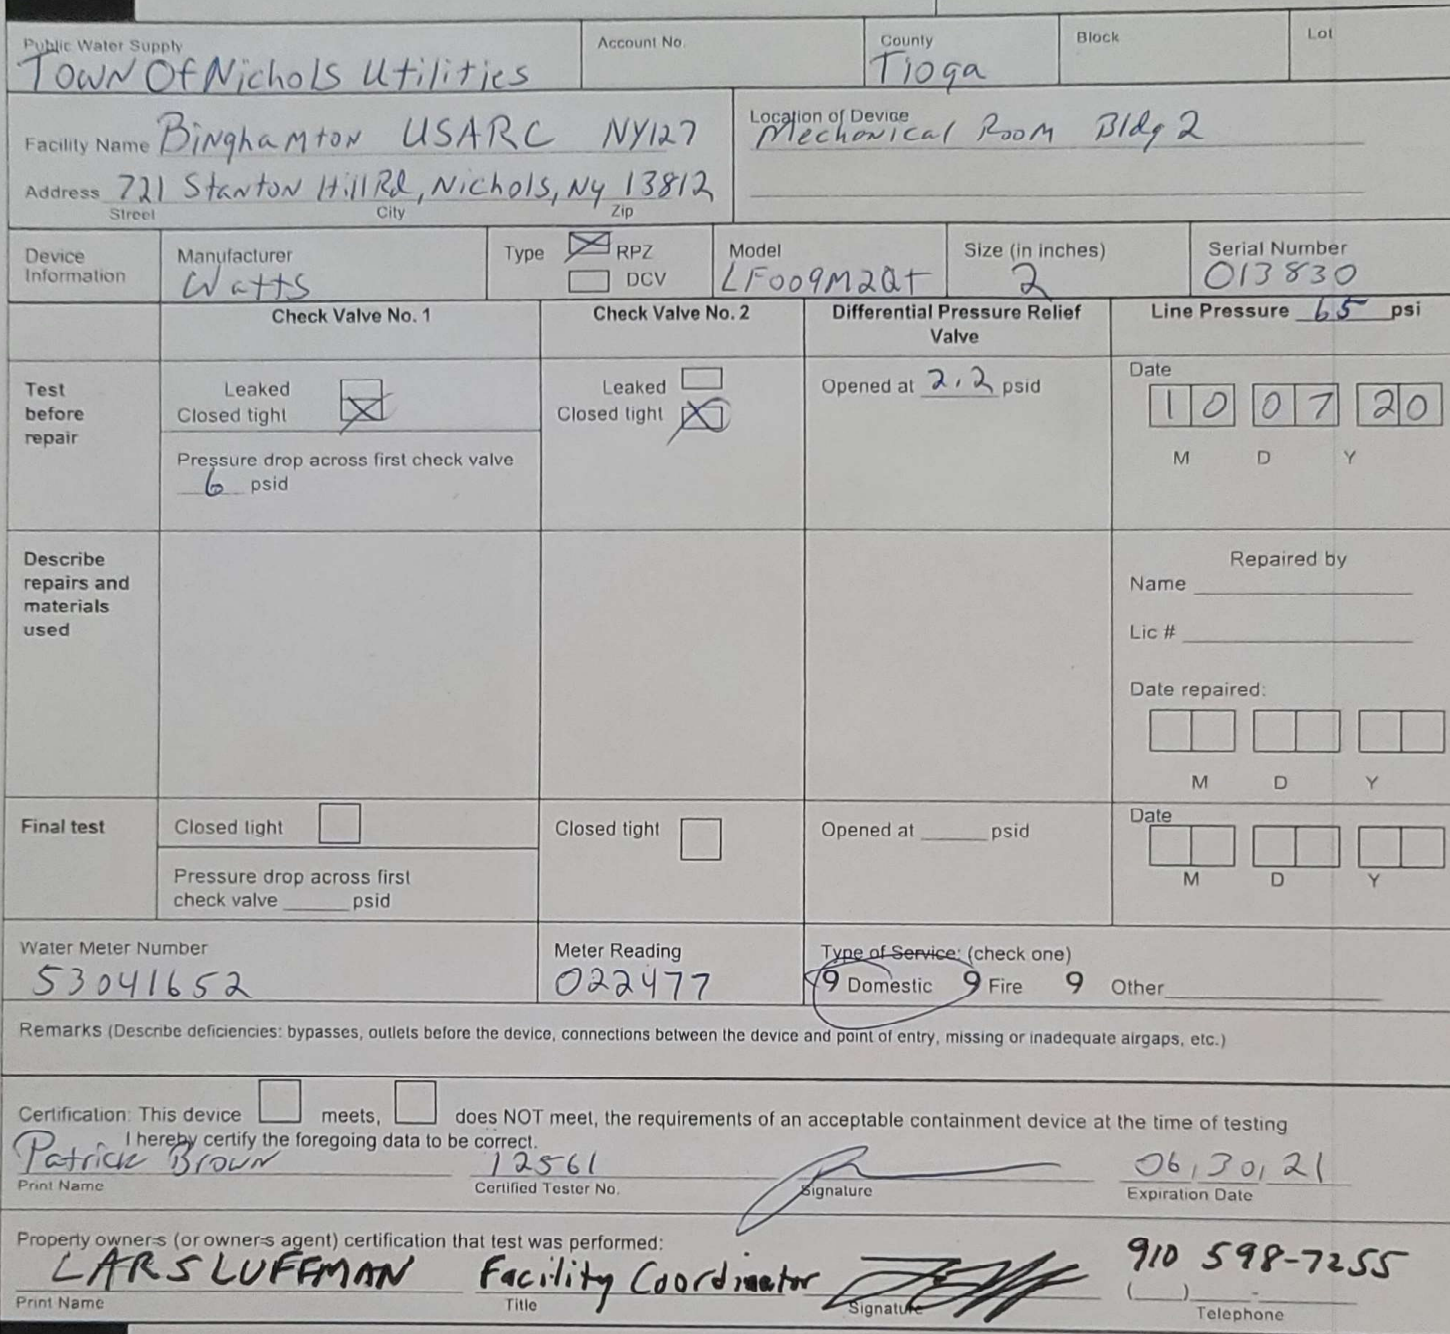 Public Water Supply
Town Of Nichols Utilities
Account No.
County
Tioga
Block
Lot
Facility Name Binghamton USARC NY127
Address 721 Stanton Hill Rd, Nichols, Ny 13812
Street City Zip
Location of Device
Mechanical Room Bldg 2
Device Information
Manufacturer
Watts
Type RPZ
DCV
Model
LF009M2QT
Size (in inches)
2
Serial Number
013830
Check Valve No. 1
Check Valve No. 2
Differential Pressure Relief
Valve
Line Pressure 65 psi
Test
before
repair
Leaked
Closed tight
Pressure drop across first check valve
6 psid
Leaked
Closed tight
Opened at 2.2 psid
Date
10 07 20
M D Y
Describe
repairs and
materials
used
Repaired by
Name
Lic #
Date repaired:
M D Y
Final test
Closed tight
Pressure drop across first
check valve ______ psid
Closed tight
Opened at ______ psid
Date
M D Y
Water Meter Number
53041652
Meter Reading
022477
Type of Service: (check one)
9 Domestic 9 Fire 9 Other
Remarks (Describe deficiencies: bypasses, outlets before the device, connections between the device and point of entry, missing or inadequate airgaps, etc.)
Certification: This device meets, does NOT meet, the requirements of an acceptable containment device at the time of testing
I hereby certify the foregoing data to be correct.
Patrick Brown 12561 06,30,21
Print Name Certified Tester No. Signature Expiration Date
Property owner=s (or owner=s agent) certification that test was performed:
LARS LUFFMAN Facility Coordinator 910 598-7255
Print Name Title Signature Telephone